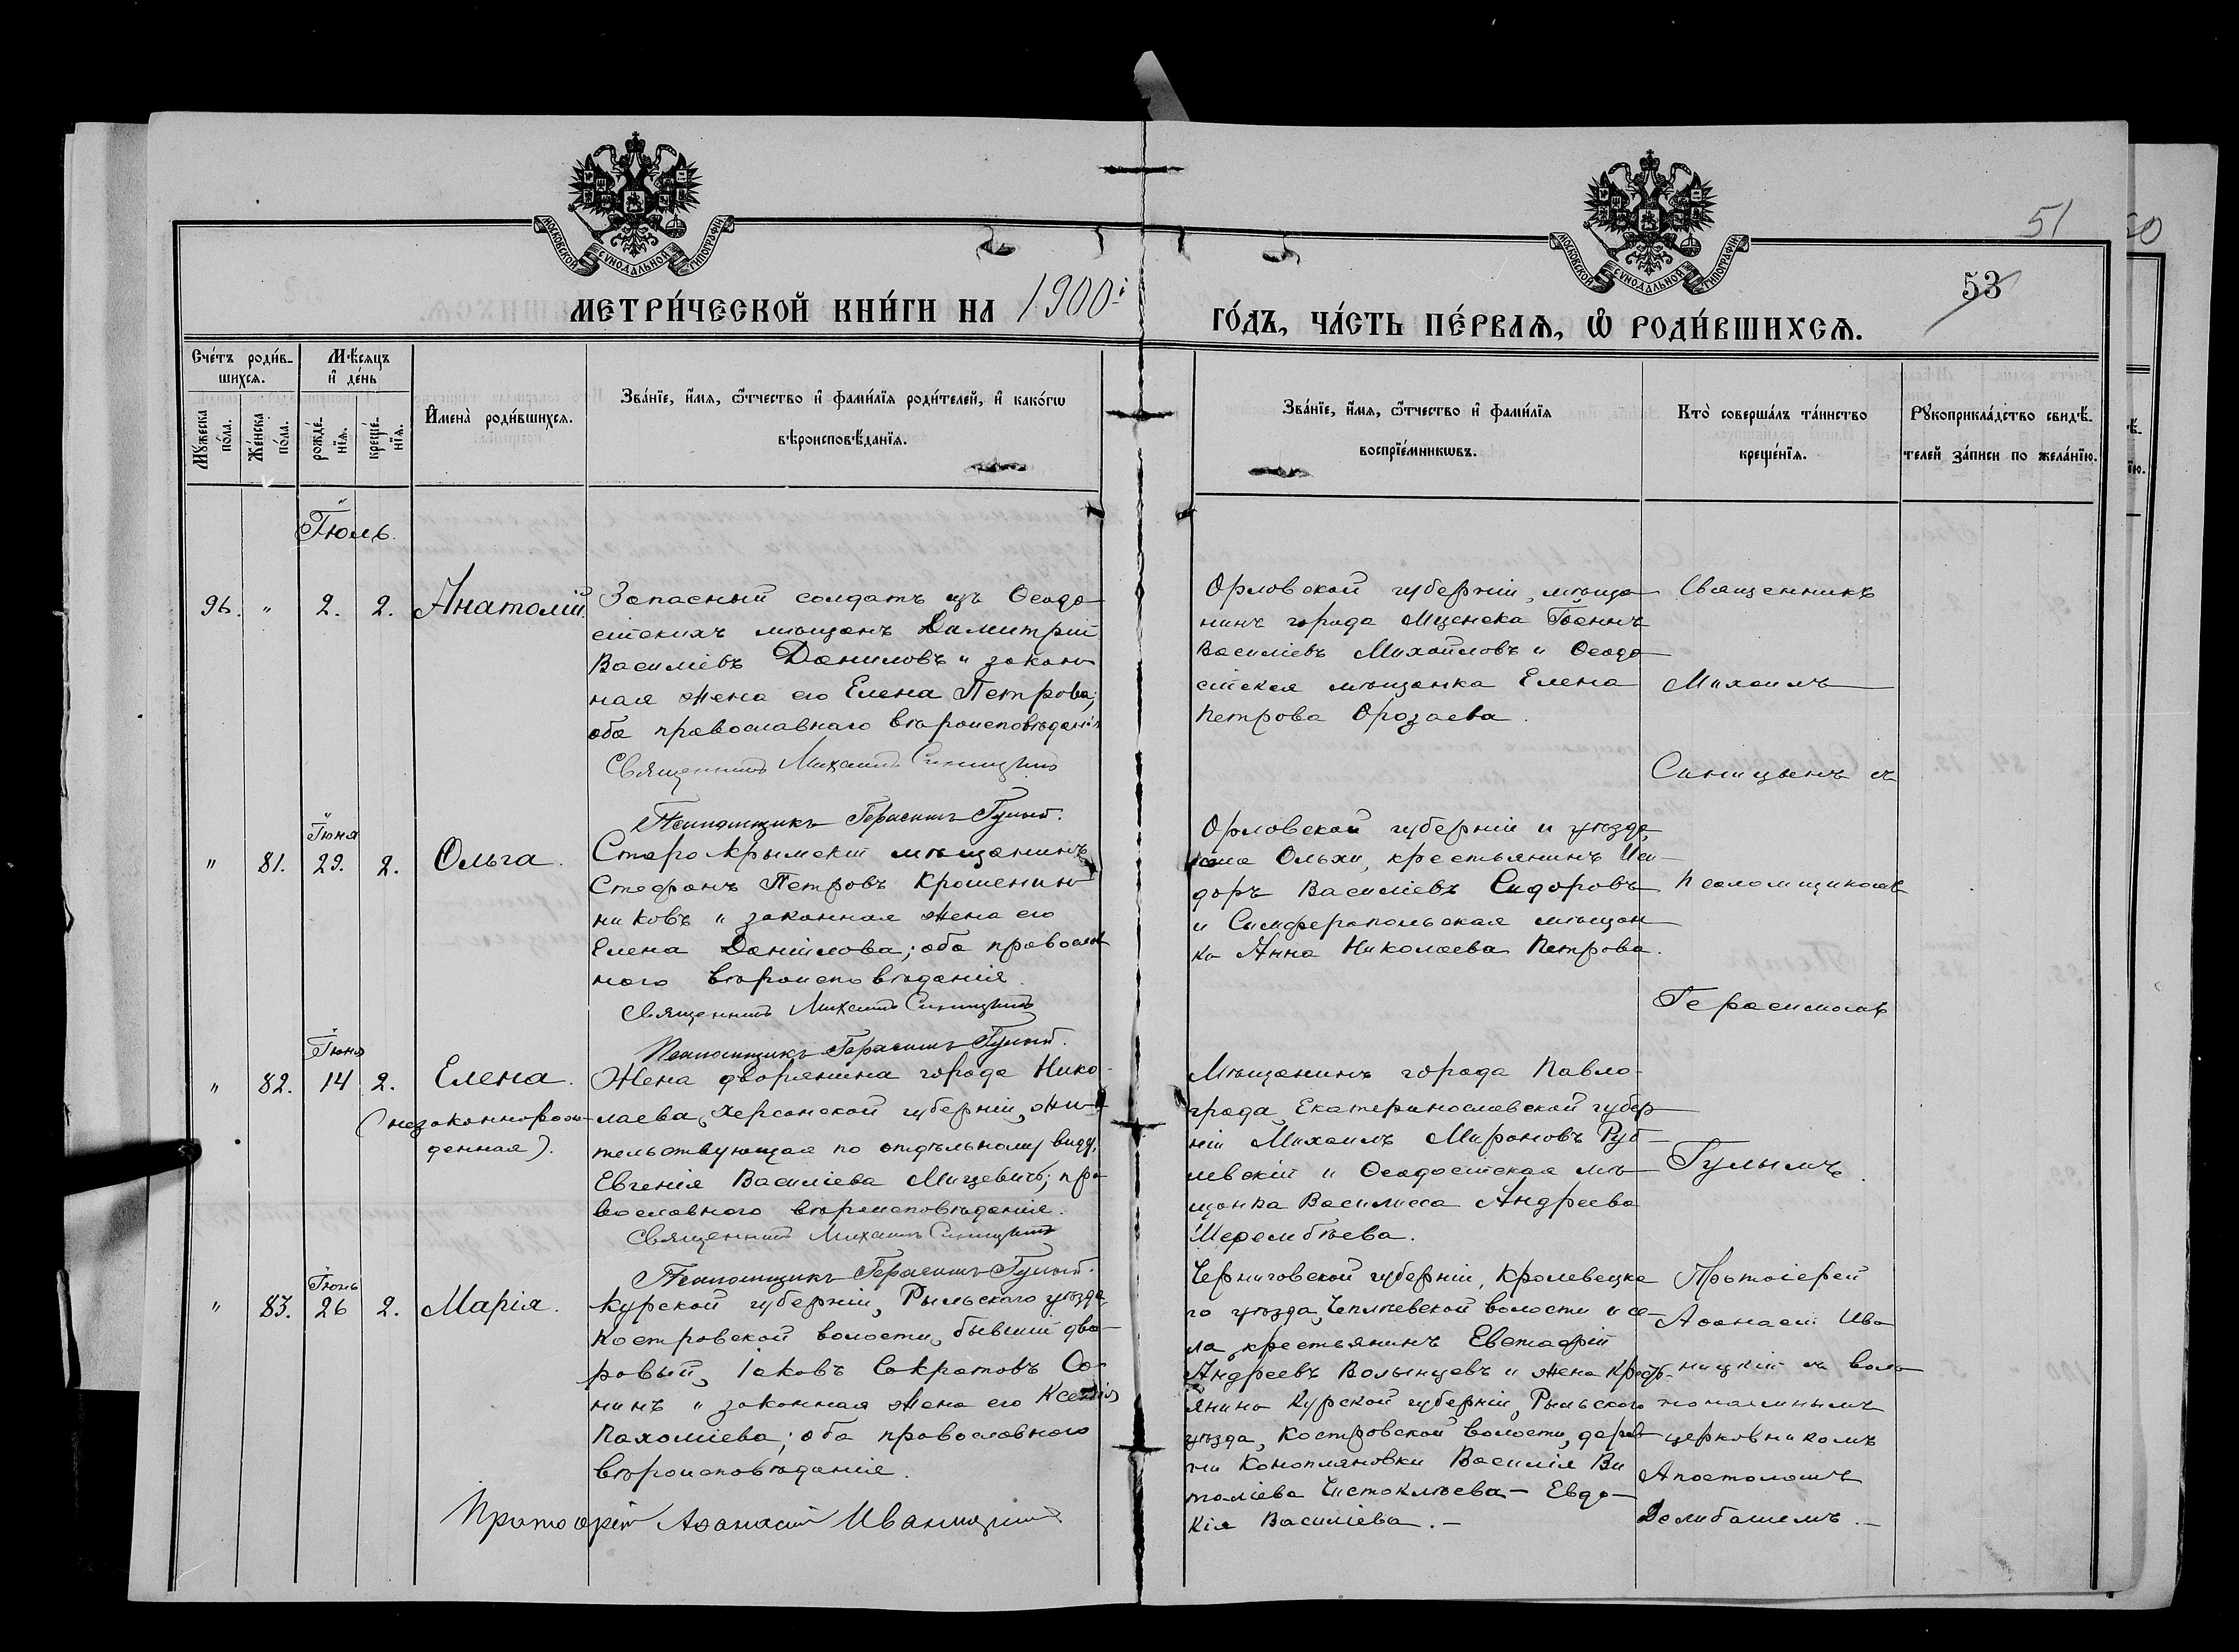 МОСКОВСКОЙ СУНОДАЛЬНОЙ ТИПОГРАФІИ
МОСКОВСКОЙ СУНОДАЛЬНОЙ ТИПОГРАФІИ
51
50
53
МЕТРИ́ЧЕСКОЙ КНИ́ГИ НА 1900й
ГО́ДЪ, ЧА́СТЬ ПЕ́РВАѦ, Ѡ҆ РОДИ́ВШИХСѦ.
Сче́тъ роди́в-
шихсѧ.
Мꙋ́жеска по́ла.
Же́нска по́ла.
Мѣ́сѧцъ
и҆ де́нь
рожде́нїѧ.
креще́нїѧ.
И҆мена̀ роди́вшихсѧ.
Зва́нїе, и҆́мѧ, ѻ҆́тчество и҆ фами́лїѧ роди́телей, и҆ како́гѡ
вѣроисповѣ́данїѧ.
Зва́нїе, и҆́мѧ, ѻ҆́тчество и҆ фами́лїѧ
воспрїе́мникѡвъ.
Кто̀ соверша́лъ та́инство
креще́нїѧ.
Рꙋкоприкла́дство свидѣ́-
телей за́писи по жела́нїю.
Іюль.
96. " 2. 2. Анатолій.
Запасный солдатъ изъ Ѳеодо-
сійскихъ мѣщанъ Димитрій
Василіевъ Даниловъ и закон-
ная жена его Елена Петрова;
оба православнаго вѣроисповѣданія
Священникъ Михаилъ Синицынъ
Псаломщикъ Герасимъ Гулый.
Орловской губерніи, мѣща-
нинъ города Мценска Іоаннъ
Василіевъ Михайловъ и Ѳеодо-
сійская мѣщанка Елена
Петрова Орозаева.
Священникъ
Михаилъ
Синицынъ съ
" 81. Іюня 29. 2. Ольга.
Старокрымскій мѣщанинъ
Стефанъ Петровъ Крошенин-
никовъ и законная жена его
Елена Даніилова; оба православ-
ного вѣроисповѣданія.
Священникъ Михаилъ Синицынъ
Псаломщикъ Герасимъ Гулый.
Орловской губерніи и уѣзда,
села Ольхи, крестьянинъ Иси-
доръ Василіевъ Сидоровъ
и Симферопольская мѣщан-
ка Анна Николаева Петрова.
псаломщикомъ
Герасимомъ
" 82. Іюня 14 2. Елена.
(незаконнорож-
денная).
Жена дворянина города Нико-
лаева, Херсонской губерніи, жи-
тельствующая по отдѣльному виду,
Евгенія Василіева Мицевичъ; пра-
вославного вѣроисповѣданія.
Священникъ Михаилъ Синицынъ
Псаломщикъ Герасимъ Гулый.
Мѣщанинъ города Павло-
града, Екатеринославской губер-
ніи Михаилъ Мироновъ Руб-
левскій и Ѳеодосійская мѣ-
щанка Василиса Андреева
Шереметьева.
Гулымъ.
" 83. Іюнь 26 2. Марія.
Курской губерніи, Рыльскаго уѣзда,
Костровской волости, бывшій дво-
ровый, Іаковъ Сократовъ Со-
нинъ и законная жена его Ксенія
Пахоміева; оба православного
вѣроисповѣданія.
Протоіерей Аѳанасій Иваницкій
Черниговской губерніи, Кролевецка-
го уѣзда, Чеплѣевской волости и се-
ла, крестьянинъ Евстафій
Андреевъ Волынцевъ и жена крестъ-
янина Курской губерніи, Рыльского
уѣзда, Костровской волости, дерев-
ни Конопляновки Василія Ви-
таліева Чистоклѣева - Евдо-
кія Василіева. -
Протоіерей
Аѳанасій Ива-
ницкій съ воль-
нонаемнымъ
церковникомъ
Апостоломъ
Делибашемъ. -